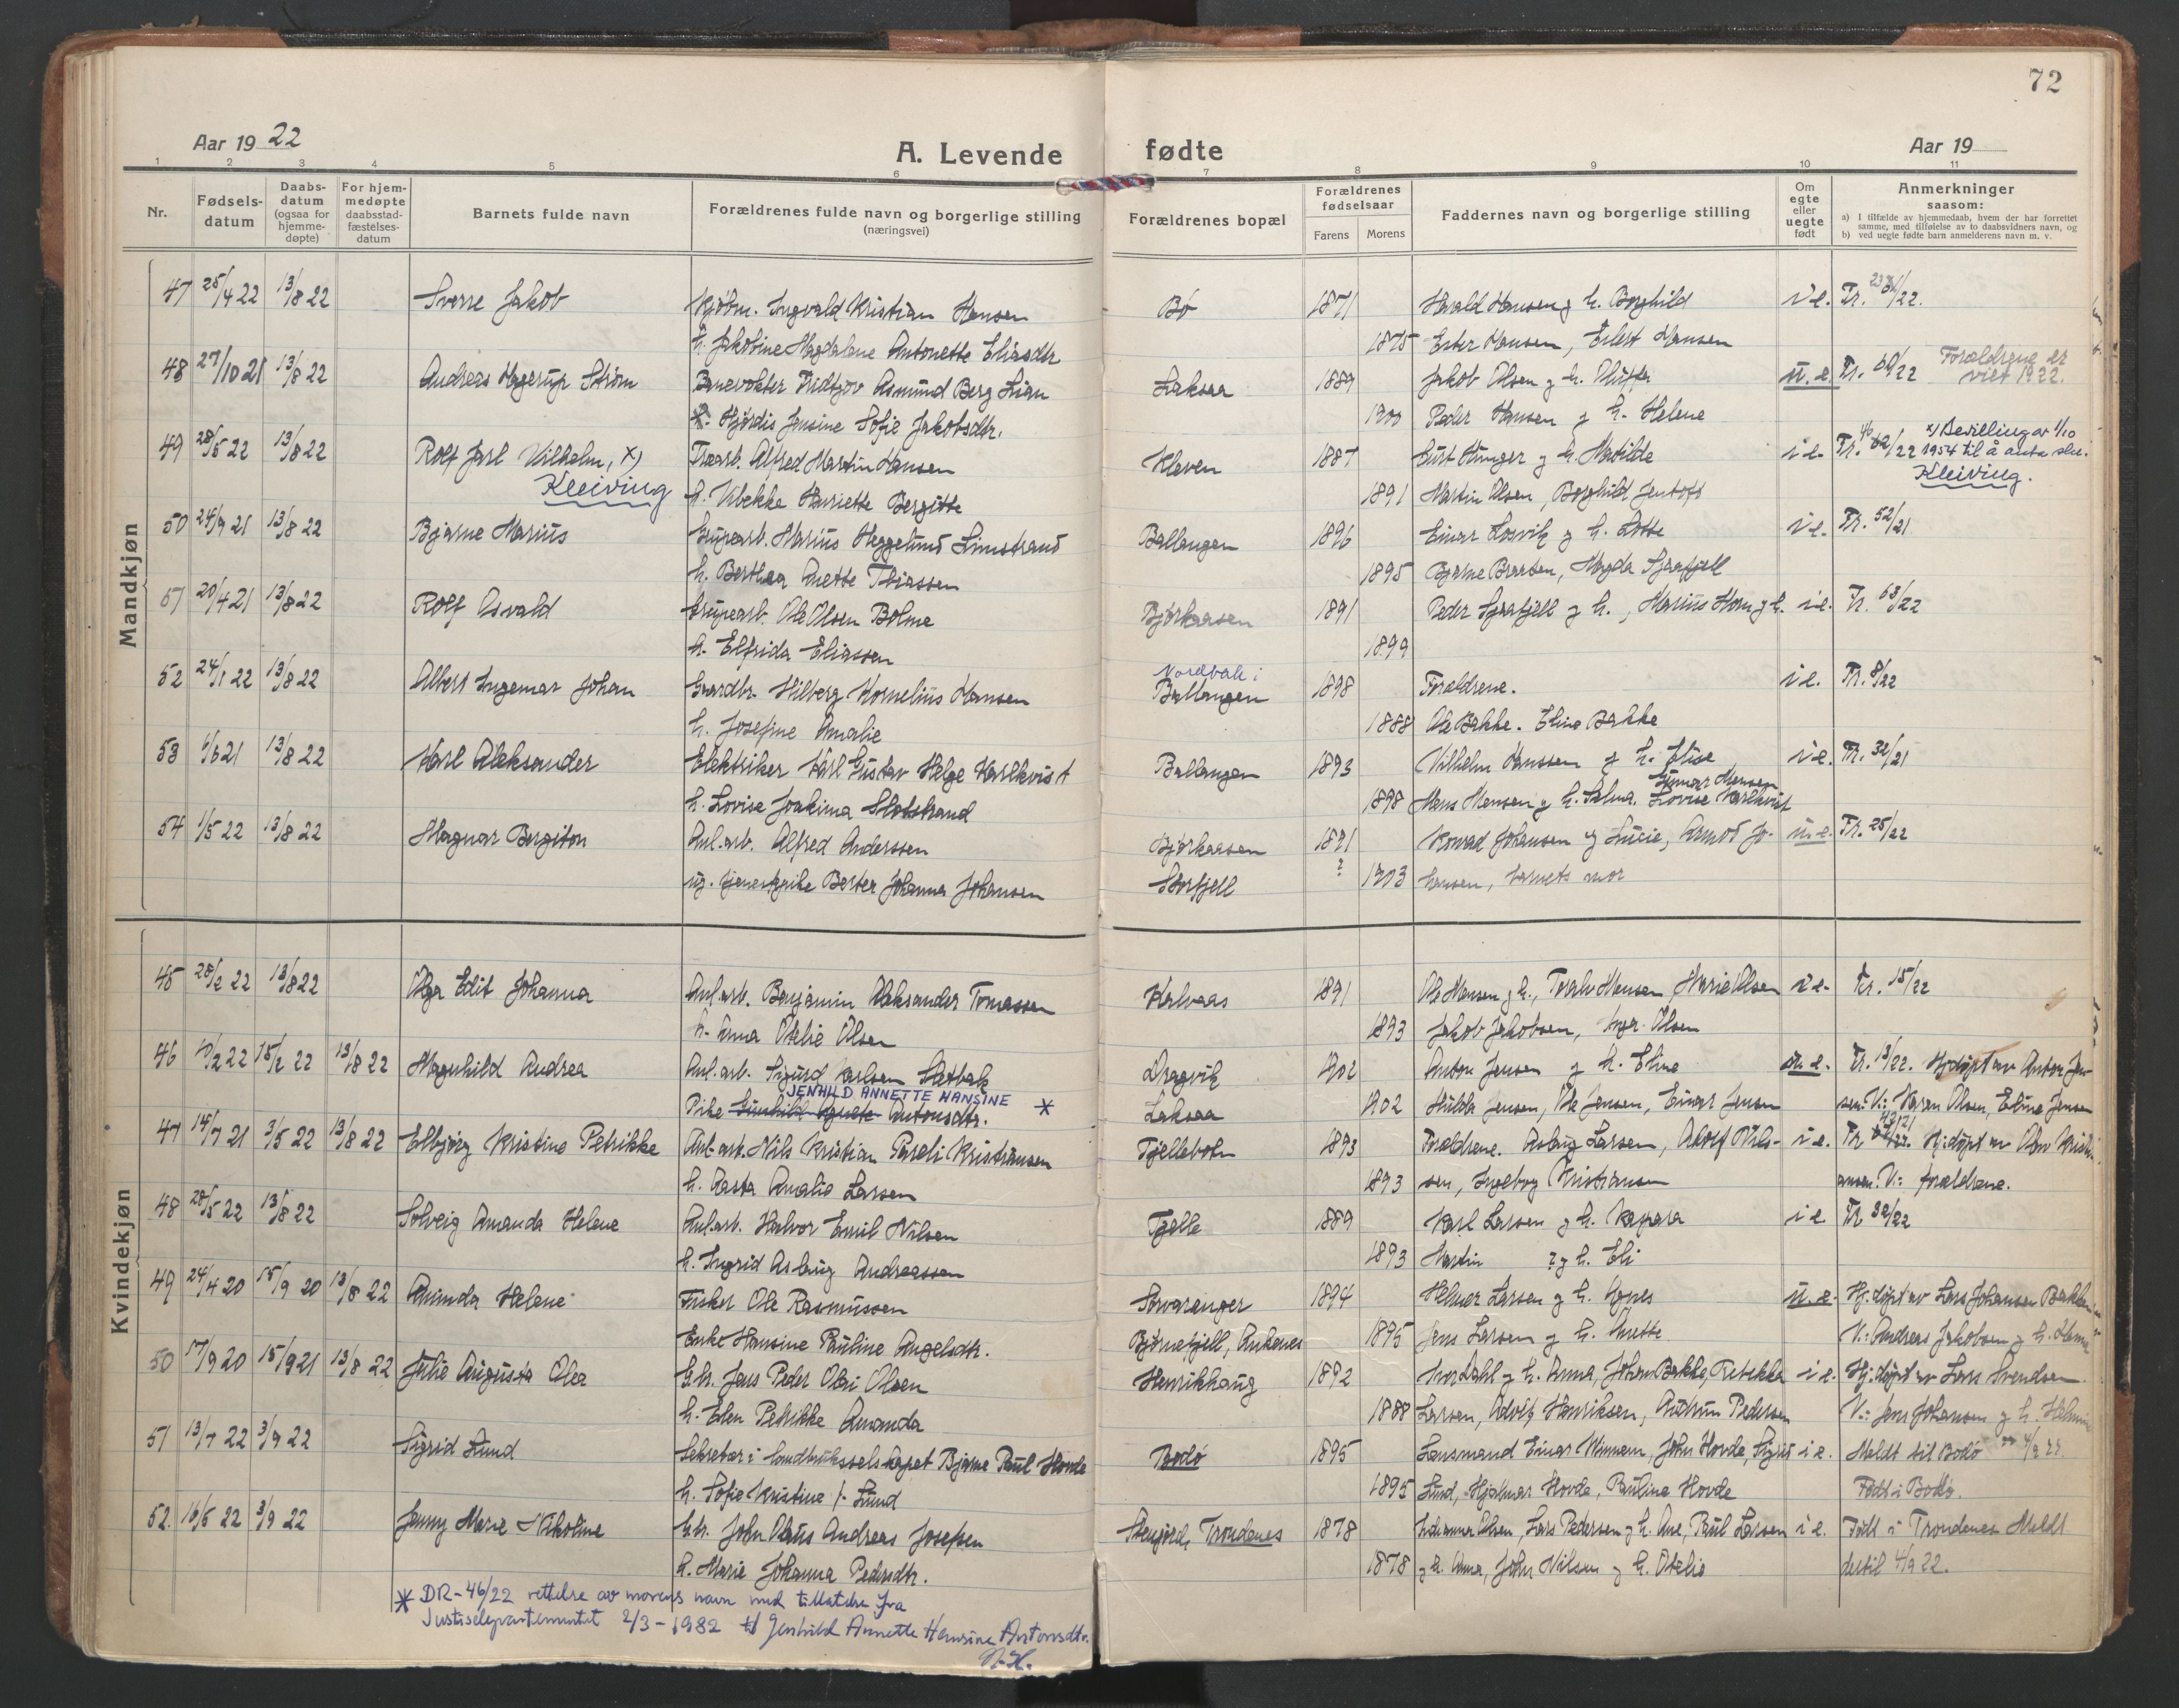 72
Aar 1922
A. Levende fødte
Aar 19
1 2 3 4 5 6 7 8 9 10 11
Nr.
Fødsels-datum
Daabs-datum (ogsaa for hjemme-døpte)
For hjem-medøpte daabsstad-fæstelses-datum
Barnets fulde navn
Forældrenes fulde navn og borgerlige stilling (næringsvei)
Forældrenes bopæl
Forældrenes fødselsaar
Farens Morens
Faddernes navn og borgerlige stilling
Om egte eller uegte født
Anmerkninger saasom:
a) I tilfælde av hjemmedaab, hvem der har forrettet samme, med tilføielse av to daabsvidners navn, og
b) ved uegte fødte barn anmelderens navn m. v.
Mandkjøn
47 25/4 22 13/8 22 Sverre Jakob Kjøbm. Ingvald Kristian Hansen Bø 1871 Harald Hansen g h. Borghild i e. Tr.
h. Jakobine Magdalene Antonette Eliasdtr 1875 Ester Hansen, Eilert Hansen
48 27/10 21 13/8 22 Andreas Hagerup Strøm Banevokter Fridtjov Asmund Berg Lian Laksaa 1889 Jakob Olsen g h. u. e. Tr. 60/22 Forældrene er viet 1922.
Hjørdis Jensine Sofie Jakobsdtr. 1900 Peder Hansen g h. Helene
49 28/5 22 13/8 22 Rolf Jarl Vilhelm, x) Træarb. Alfred Martin Hansen Kleven 1887 Kurt Unger g h. Matilde i e. Tr. 46/22 x) Bevilling av 1/10 1954 til å anta sln. Kleiving.
Kleiving h. Vibekke Henriette Bergitte 1891 Martin Olsen, Borghild Jentoft
50 24/9 21 13/8 22 Bjarne Marius Grupearb. Marius Heggelund Limstrand Ballangen 1896 Einar Losvik g h. Lotte i e. Tr. 52/21
h. Berthea Anette Tobiassen 1895 Bjarne Braaten, Magda Sjaafjell
51 20/4 21 13/8 22 Rolf Osvald Grupearb. Ole Olsen Bolme Bjørkaasen 1891 Peder Sjaafjell g h., Marius Horn g h. i e. Tr. 63/22
h. Elfrida Eliassen 1899
52 24/1 22 13/8 22 Albert Ingemar Johan Gaardbr. Hilberg Kornelius Hansen Nordbak i Ballangen 1898 Forældrene. i e. Tr. 8/22
h. Josefine Amalie 1888 Ole Bakke. Eline Bakke
53 1/6 21 13/8 22 Karl Aleksander Elektriker Karl Gustav Helge Karlkvist Ballangen 1893 Vilhelm Hanssen g h. Elise i e. Tr. 32/21
h. Lovise Joakima Slotstrand 1898 Mons Monsen g h. Selma. Gunnar Monsen Lovise Karlkvist
54 1/5 22 13/8 22 Magnar Bergiton Anl.arb. Alfred Anderssen Bjørkaasen 1891 ? Konrad Johansen g Lucie, Arnold Jo- u. e. Tr. 25/22
ug. tjenestepike Berter Johanna Johansen Storfjell 1903 hansen, barnets mor
Kvindekjøn
45 28/2 22 13/8 22 Olga Edit Johanna Anl.arb. Benjamin Aleksander Tomassen Kalvaas 1891 Ole Hansen g h., Toralv Hansen, Marie Olsen i e. Tr. 15/22
h. Anna Otelie Olsen 1893 Jakob Jakobsen, Inger Olsen
46 10/2 22 15/2 22 13/8 22 Magnhild Andrea Anl.arb. Sigurd Karlsen Sætbak Dragvik 1902 Anton Jensen g h. Eline u. e. Tr. 13/22. Hj.døpt av Anton Jen-
Pike Gunhild Agnete JENHILD ANNETTE HANSINE Antonsdtr. * Laksaa 1902 Hulda Jensen, Ole Jensen, Einar Jensen sen. V.: Karen Olsen, Eline Jensen
47 14/7 21 3/5 22 13/8 22 Elbjørg Kristine Petrikke Anl.arb. Nils Kristian Pareli Kristiansen Tjellebotn 1893 Forældrene. Aslaug Larsen, Adolf Nils- i e. Tr. Hj.døpt av Kristi-
h. Aasta Amalie Larsen 1893 sen, Ingeborg Kristiansen ansen. V.: forældrene.
48 28/5 22 13/8 22 Solveig Amanda Helene Anl.arb. Halvor Emil Nilsen Tjelle 1889 Karl Larsen g h. Kaspara i e. Tr 32/22
h. Ingrid Aslaug Andreassen 1893 Martin ? g h. Eli
49 24/4 20 15/9 20 13/8 22 Aminda Helene Fisker Ole Rasmussen Sørvaranger 1894 Helmer Larsen g h. Agnes u. e. Hj.døpt av Lars Johansen Bakken
Enke Hansine Pauline Angelsdtr. Bjørnefjell, Ankenes 1895 Jens Larsen g h. Anette V.: Andreas Jakobsen g h. Hanna
50 17/9 20 15/9 21 13/8 22 Julie Augusta Olea Gbr. Jens Peder Olai Olsen Henrikhaug 1892 Ivar Dahl g h. Anna, Johan Bakke, Rebekka i e. Hj.døpt av Lars Svendsen
h. Elen Petrikke Amanda 1888 Larsen, Advig Henriksen, Gudrun Pedersen V.: Jens Johansen g h. Helmine
51 13/7 22 3/9 22 Sigrid Lund Sekretær i landbruksselskapet Bjarne Paul Hovde Bodø 1895 Lensmand Einar Winnem, John Hovde, Sigrid i e. Meldt til Bodø 4/9 22.
h. Sofie Kristine f. Lund 1895 Lund, Hjalmar Hovde, Pauline Hovde Født i Bodø.
52. 16/5 22 3/9 22 Jenny Marie Nikoline Gbr. John Olaus Andreas Josefsen Stenfjord, Trondenes 1878 Indianna Olsen, Lars Pedersen g h. Ane, Paul Larsen i e. Født i Trondenes Meldt
h. Marie Johanna Pedersdtr. 1878 g h. Anna, John Nilsen g h. Otelie dertil 4/9 22.
* DR-46/22 rettelse av morens navn med tillatelse fra
Justisdepartementet 2/3-1982 til Jenhild Annette Hansine Antonsdtr.
N.H.